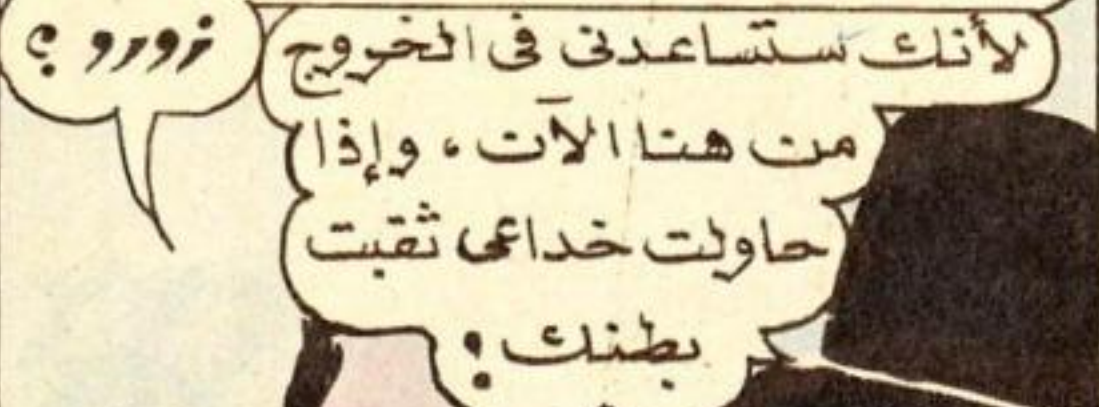 لأنك ستساعدنى فى الخروج
من هنا الآن ، وإذا
حاولت خداعى ثقبت
بطنك !
زورو ؟